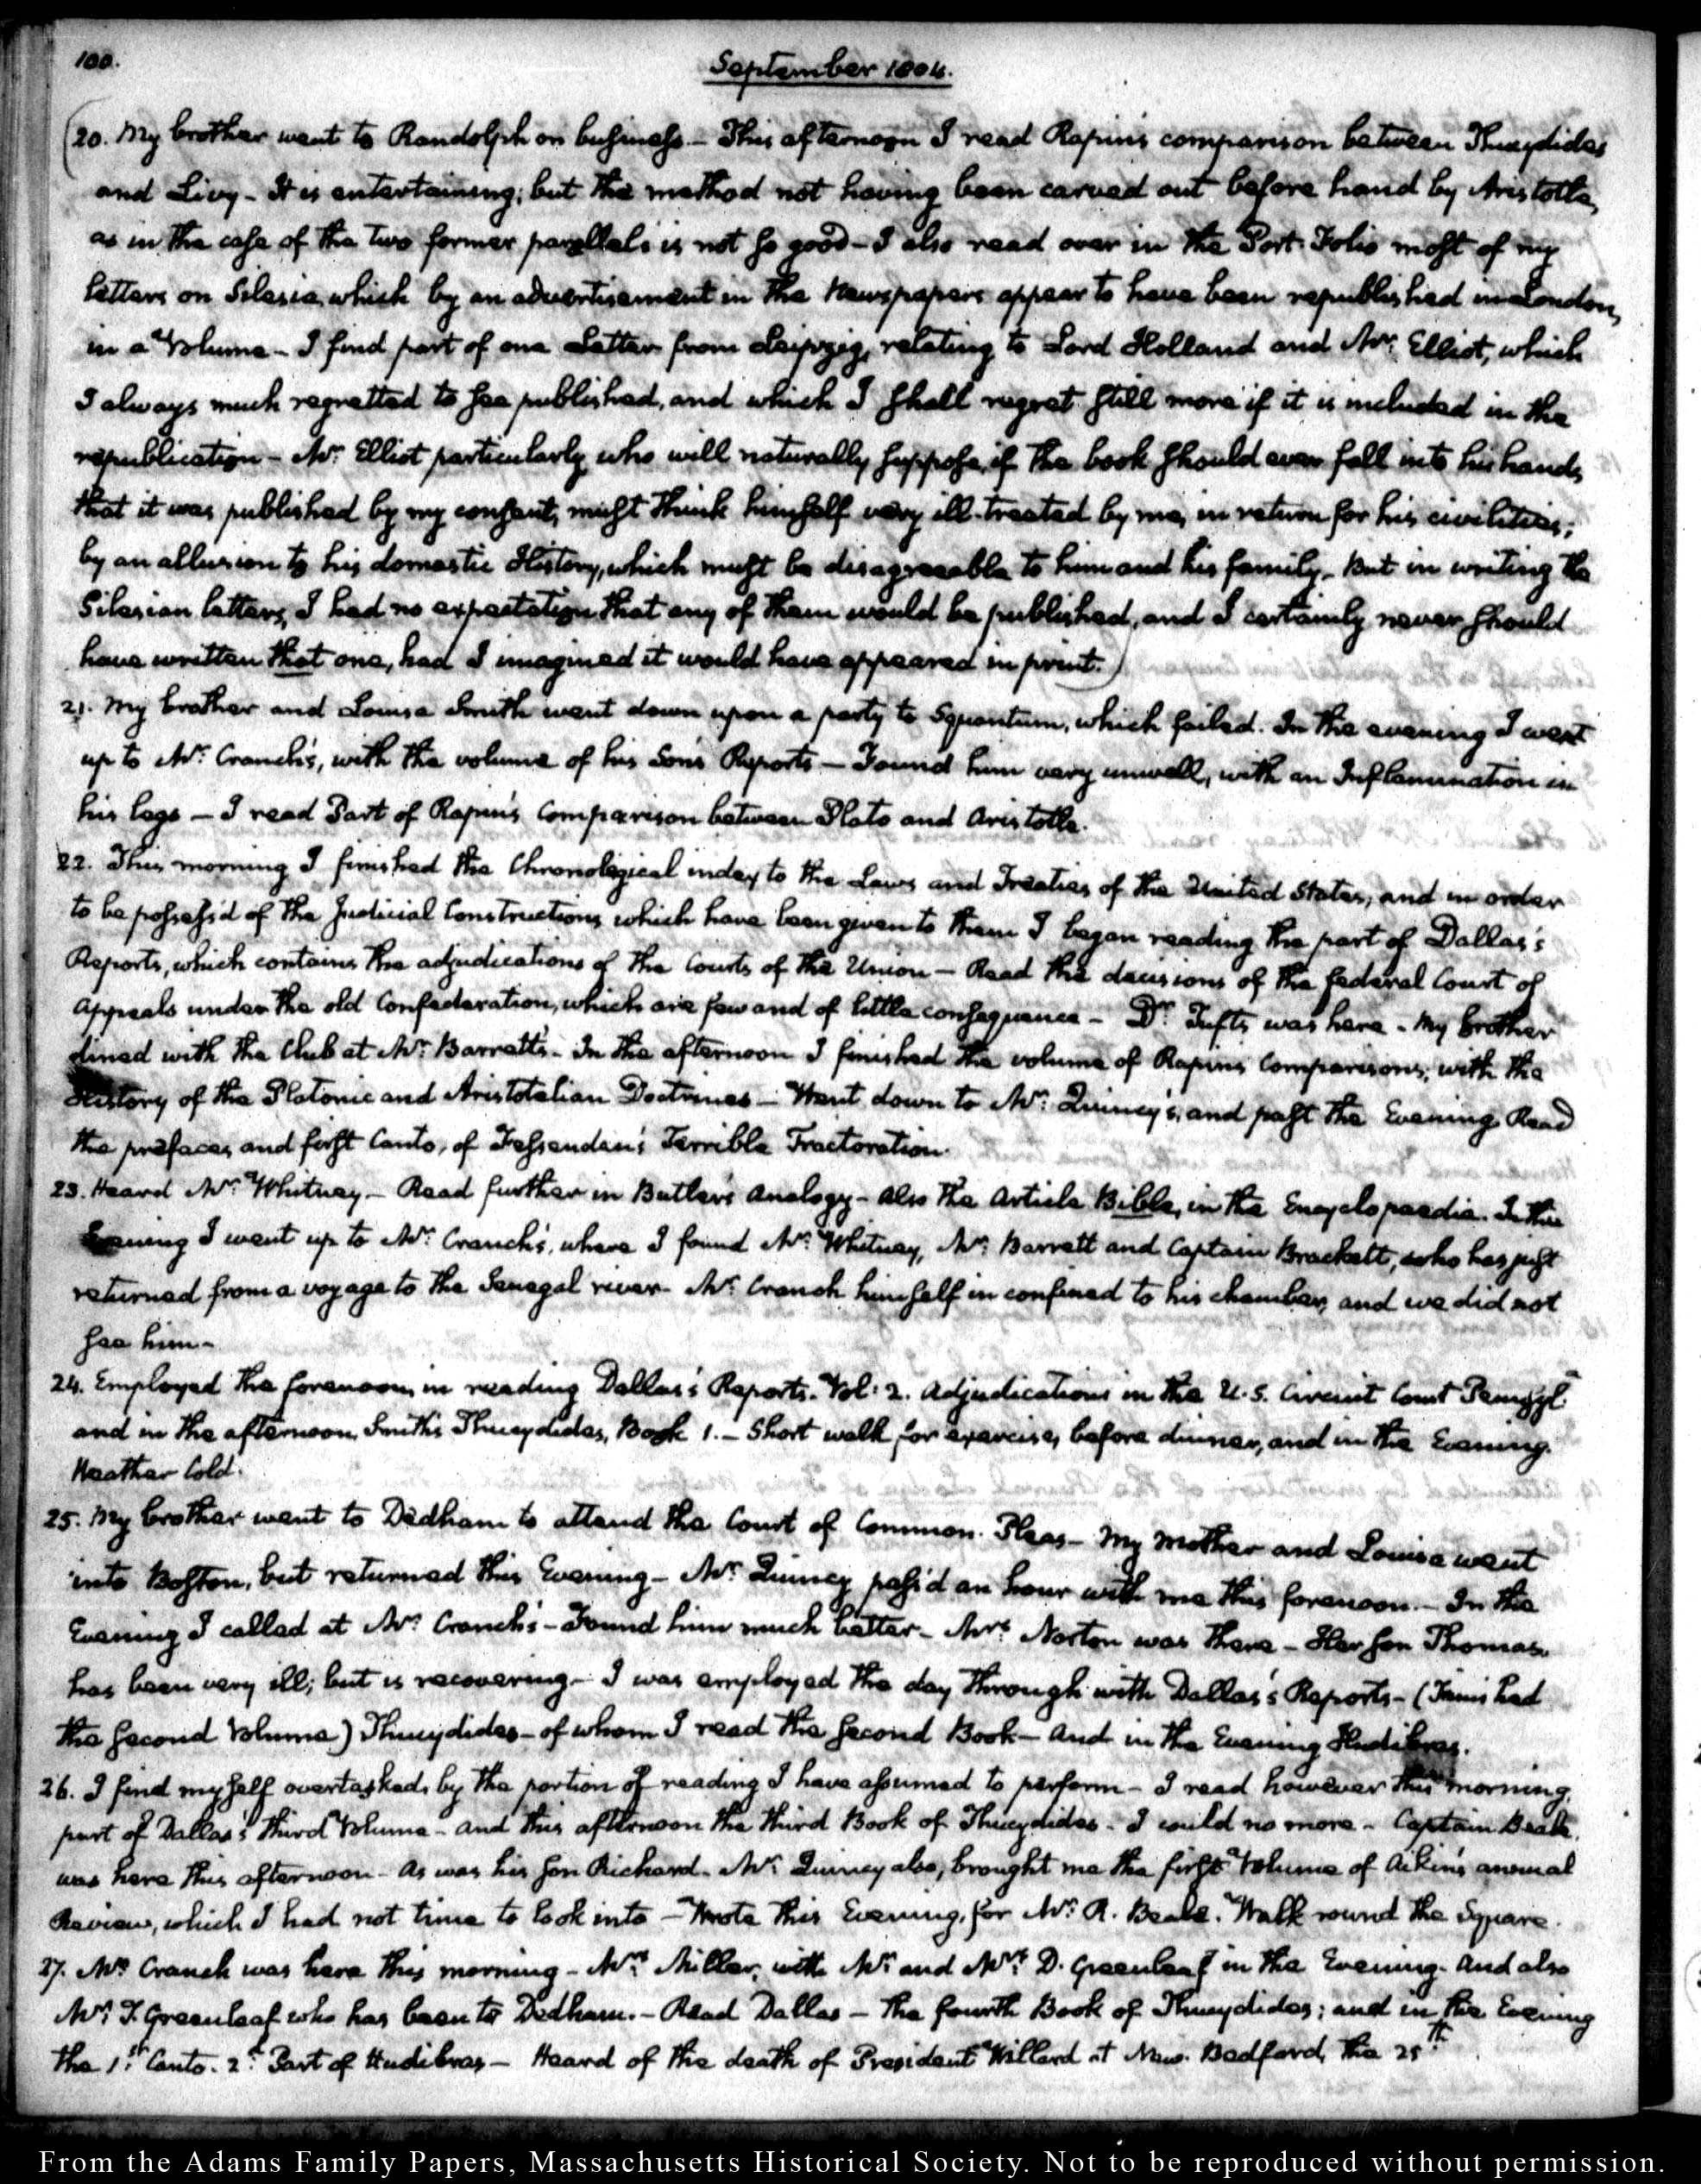 100.
September 1804.
(20. My brother went to Randolph on business.- This afternoon I read Rapin's comparison between Thucydides
and Livy- It is entertaining; but the method not having been carved out before hand by Aristotle,
as in the case of the two former parallels is not so good- I also read over in the Port-Folio most of my
letters on Silesia, which by an advertisement in the Newspapers appear to have been republished in London,
in a Volume- I find part of one Letter from Leipzig, relating to Lord Holland and Mr. Elliot, which
I always much regretted to see published, and which I shall regret still more if it is included in the
republication- Mr. Elliot particularly who will naturally suppose, if the book should ever fall into his hands,
that it was published by my consent, must think himself very ill-treated by me, in return for his civilities;
by an allusion to his domestic History, which must be disagreeable to him and his family- But in writing the
Silesian letters, I had no expectation that any of them would be published, and I certainly never should
have written that one, had I imagined it would have appeared in print.)
21. My brother and Louisa Smith went down upon a party to Squantum, which failed. In the evening I went
up to Mr. Cranch's, with the volume of his Son's Reports- Found him very unwell, with an Inflammation in
his legs- I read Part of Rapin's Comparison between Plato and Aristotle.
22. This morning I finished the Chronological index to the Laws and Treaties of the United States, and in order
to be possess'd of the Judicial Constructions which have been given to them I began reading the part of Dallas's
Reports, which contains the adjudications of the Courts of the Union- Read the decisions of the federal Court of
Appeals under the old Confederation, which are few and of little consequence- Dr. Tufts was here- My brother
dined with the Club at Mr. Barrett's- In the afternoon I finished the volume of Rapin's Comparisons; with the
History of the Platonic and Aristotelian Doctrines- Went down to Mr. Quincy's, and past the Evening. Read
the prefaces, and first Canto, of Fessenden's Terrible Tractoration.
23. Heard Mr. Whitney- Read further in Butler's Analogy- Also the Article Bible, in the Encyclopaedia. In the
Evening I went up to Mr. Cranch's, where I found Mr. Whitney, Mr. Barrett and Captain Brackett, who has just
returned from a voyage to the Senegal river- Mr. Cranch himself in confined to his chamber, and we did not
see him-
24. Employed the forenoon, in reading Dallas's Reports. Vol: 2. Adjudications in the U.S. Circuit Court Pensyl:
and in the afternoon, Smith's Thucydides, Book 1.- Short walk for exercise, before dinner, and in the Evening.
Weather Cold.
25. My brother went to Dedham to attend the Court of Common-Pleas- My Mother and Louisa went
into Boston, but returned this Evening- Mr. Quincy pass'd an hour with me this forenoon.- In the
Evening I called at Mr. Cranch's- Found him much better- Mrs. Norton was there- Her son Thomas
has been very ill; but is recovering- I was employed the day through with Dallas's Reports- (Finished
the second Volume) Thucydides- of whom I read the second Book- And in the Evening Hudibras.
26. I find myself overtasked, by the portion of reading I have assumed to perform- I read however this morning,
part of Dallas's third Volume- and this afternoon the third Book of Thucydides- I could no more- Captain Beale
was here this afternoon- As was his son Richard- Mr. Quincy also, brought me the first Volume of Aikin's annual
Review, which I had not time to look into- Wrote this Evening, for Mr. R. Beale. Walk round the Square.
27. Mrs. Cranch was here this morning- Mrs. Miller, with Mr. and Mrs. D. Greenleaf in the Evening- And also
Mr. T. Greenleaf who has been to Dedham.- Read Dallas- The fourth Book of Thucydides; and in the Evening
the 1st. Canto. 2d. Part of Hudibras- Heard of the death of President Willard at New-Bedford, the 25th.
From the Adams Family Papers, Massachusetts Historical Society. Not to be reproduced without permission.